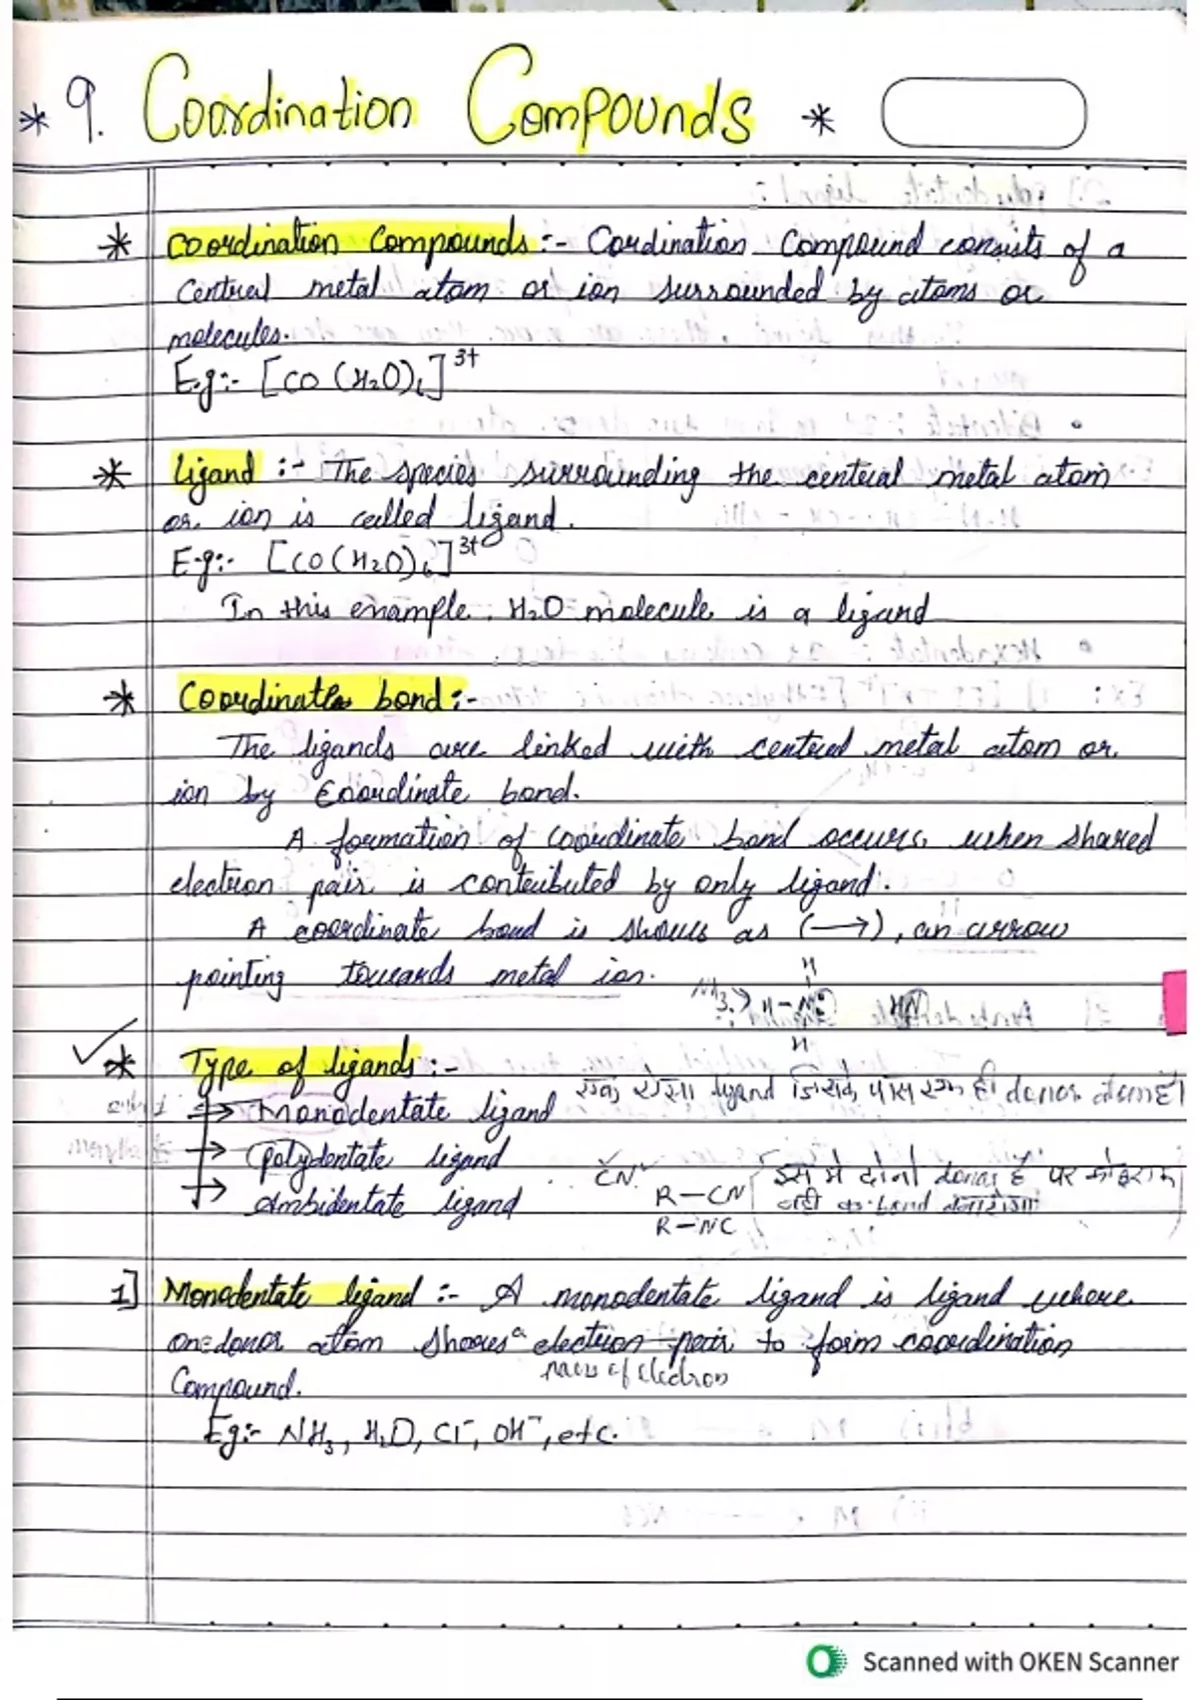 * 9. Coordination Compounds *
* Coordination Compounds :- Cordination Compound consists of a
Central metal atom or ion surrounded by atoms or
molecules.
E.g:- [CO (H₂O)₆]³⁺
* Ligand :- The species surrounding the central metal atom
or ion is called ligand.
E.g:- [CO(H₂O)₆]³⁺
In this example, H₂O molecule is a ligand
* Coordinate bond:-
The ligands are linked with central metal atom or
ion by Coordinate bond.
A formation of coordinate bond occurs, when shared
electron pair is contributed by only ligand.
A coordinate bond is shows as (⟶), an arrow
pointing towards metal ion.
H
NH₃ → H-N:
H
* Type of ligands:-
→ Monodentate ligand
एक ऐसा ligand जिसके पास एक ही donor
→ Polydentate ligand
→ Ambidentate ligand
CN
R-CN
R-NC
इस मे दोनो donar है पर
1] Monodentate ligand :- A monodentate ligand is ligand where
one donor atom shares a electron pair to form coordination
pairs of electron
Compound.
Eg:- NH₃, H₂O, Cl⁻, OH⁻, etc.
Scanned with OKEN Scanner